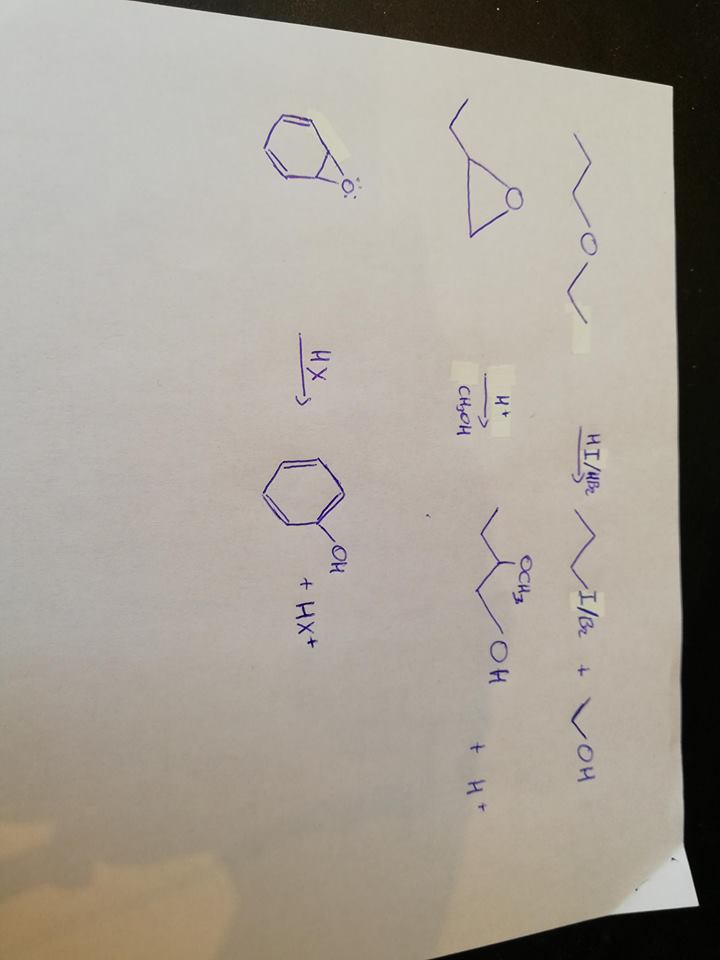 O HI/HBr I/Br + OH
O H+ CH3OH OCH3 OH + H+
O HX OH + HX+